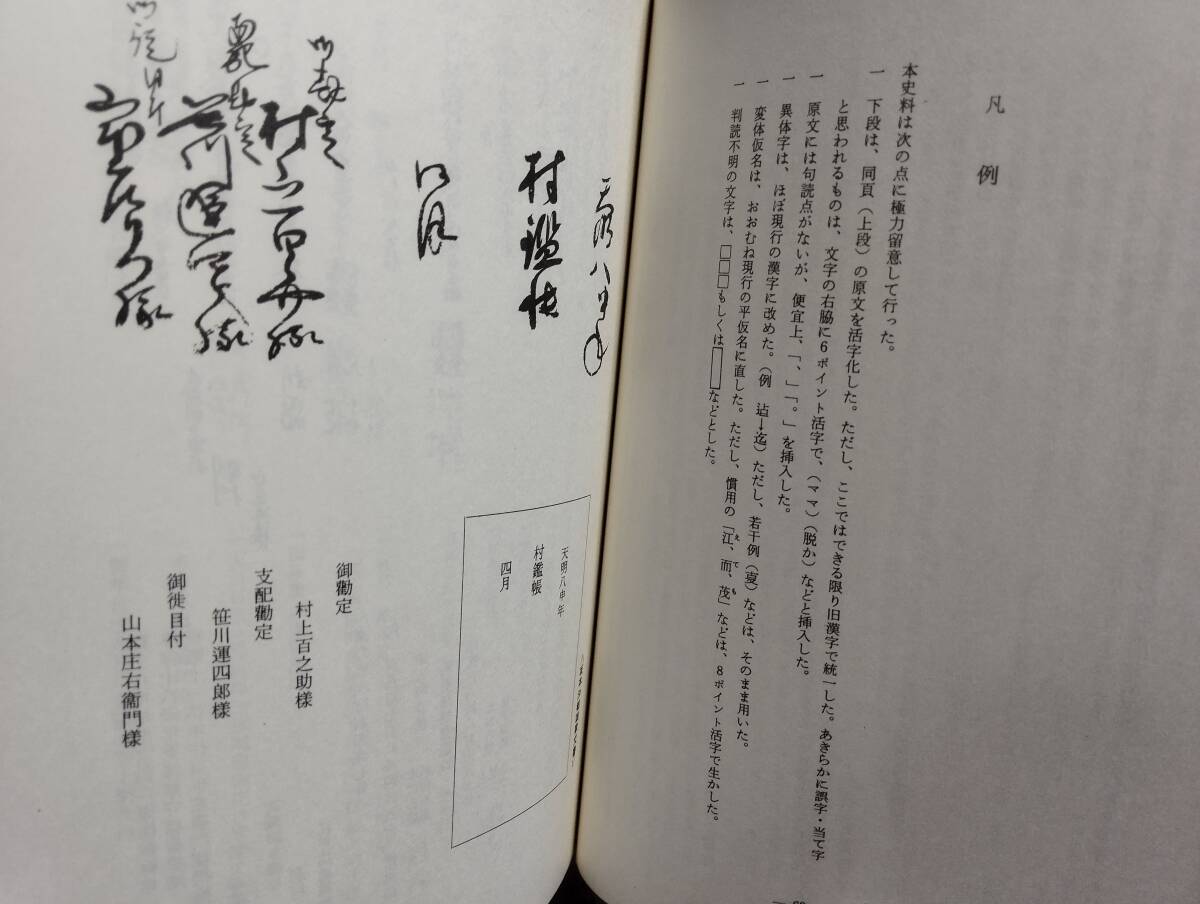 凡例
本史料は次の点に極力留意して行った。
一 下段は、同頁（上段）の原文を活字化した。ただし、ここではできる限り旧漢字で統一した。あきらかに誤字・当て字
と思われるものは、文字の右脇に６ポイント活字で、（ママ）（脱か）などと挿入した。
一 原文には句読点がないが、便宜上、「、」「。」を挿入した。
一 異体字は、ほぼ現行の漢字に改めた。（例 迠→迄）ただし、若干例（㚑）などは、そのまま用いた。
一 変体仮名は、おおむね現行の平仮名に直した。ただし、慣用の「江、而、茂」などは、８ポイント活字で生かした。
一 判読不明の文字は、□□□もしくは▯などとした。
天明八申年
村鑑帳
四月
御勘定
村上百之助様
支配勘定
笹川運四郎様
御徒目付
山本庄右衛門様
天明八申年
村鑑帳
四月
御勘定
村上百之助様
支配勘定
笹川運四郎様
御徒目付
山本庄右衛門様